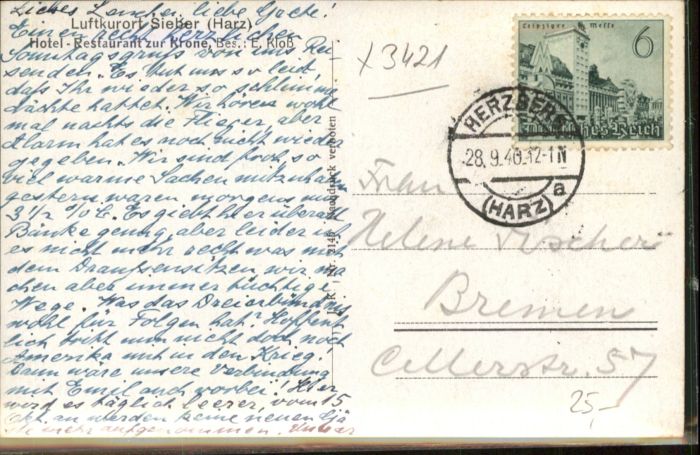 Liebes Lenchen, liebe Grete!
Luftkurort Sieber (Harz)
Einen recht herzlichen
Hotel-Restaurant zur Krone, Bes.: E. Kloß
Sonntagsgruss von uns Rei-
senden. Es tut uns so leid,
dass Ihr wieder so schlimme
Nächte hattet. Wir hören wohl
mal nachts die Flieger, aber
Alarm hat es noch nicht wieder
gegeben. Wir sind froh, so
viel warme Sachen mitzuhaben
gestern waren morgens nur
3 1/2 % C. Es giebt hier überall
Bänke genug, aber leider ist
es nicht mehr recht was mit
dem Draussensitzen wir ma
chen aber immer tüchtige
Wege. Was das Dreierbündnis
wohl für Folgen hat? Hoffent
lich tritt nun nicht doch noch
Amerika mit in den Krieg.
Dann wäre unsere Verbindung
mit Emil auch vorbei! Hier
wird es täglich leerer, vom 15
Okt. an werden keine neuen Gä
ste mehr aufgenommen.
J. K. Nr. 2145 Nachdruck verboten
x 3421
Leipziger Messe
6
Deutsches Reich
HERZBERG
28.9.40.12-1N
(HARZ) a
Frau
Helene
Bremen
Cellerstr. 57
25,-